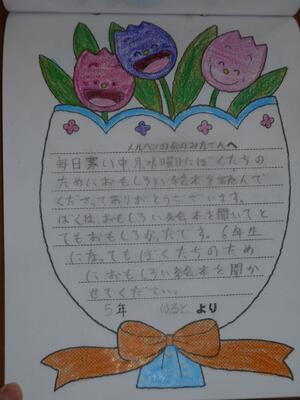 メルヘンの会のみなさんへ
毎日寒い中月曜日にぼくたちの
ためにおもしろい絵本を読んで
くださってありがとうございます。
ぼくは、おもしろい絵本を聞いてと
てもおもしろかったです。6年生
になってもぼくたちのため
におもしろい絵本を聞か
せてください。
5年 はると より